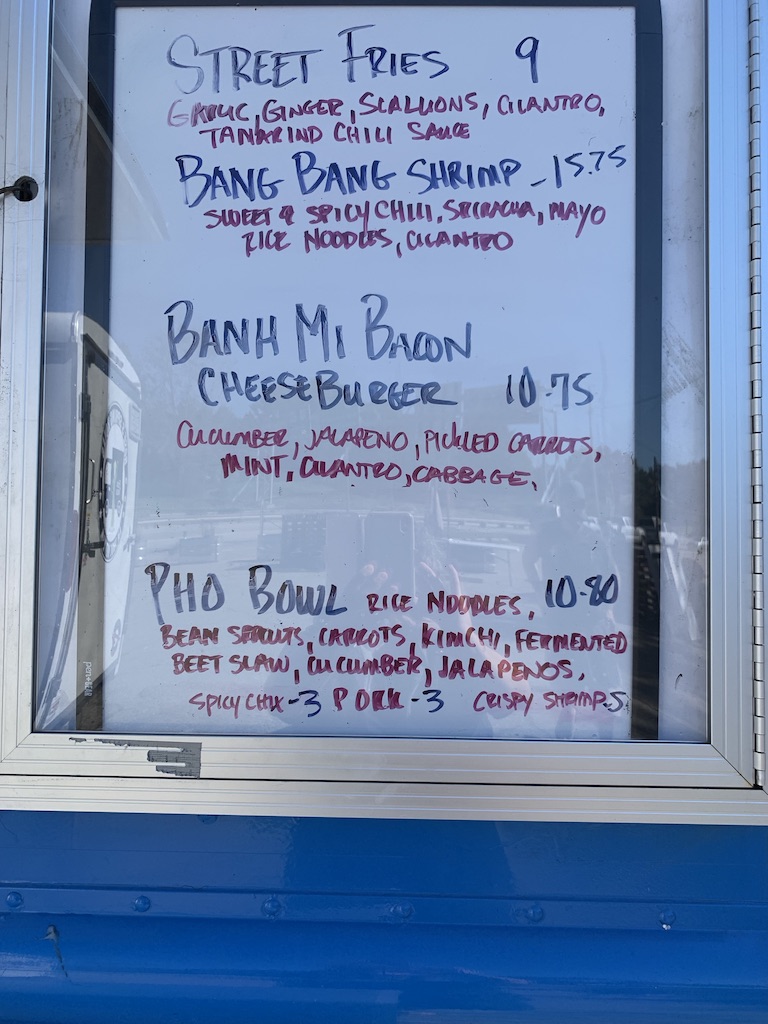 STREET FRIES 9
GARLIC, GINGER, SCALLIONS, CILANTRO,
TAMARIND CHILI SAUCE
BANG BANG SHRIMP - 15.75
SWEET & SPICY CHILI, SRIRACHA, MAYO
RICE NOODLES, CILANTRO
BANH MI BACON
CHEESEBURGER 10.75
CUCUMBER, JALAPENO, PICKLED CARROTS,
MINT, CILANTRO, CABBAGE,
PHO BOWL RICE NOODLES, 10.80
BEAN SPROUTS, CARROTS, KIMCHI, FERMENTED
BEET SLAW, CUCUMBER, JALAPENOS,
SPICY CHIX - 3 PORK - 3 CRISPY SHRIMP. 5